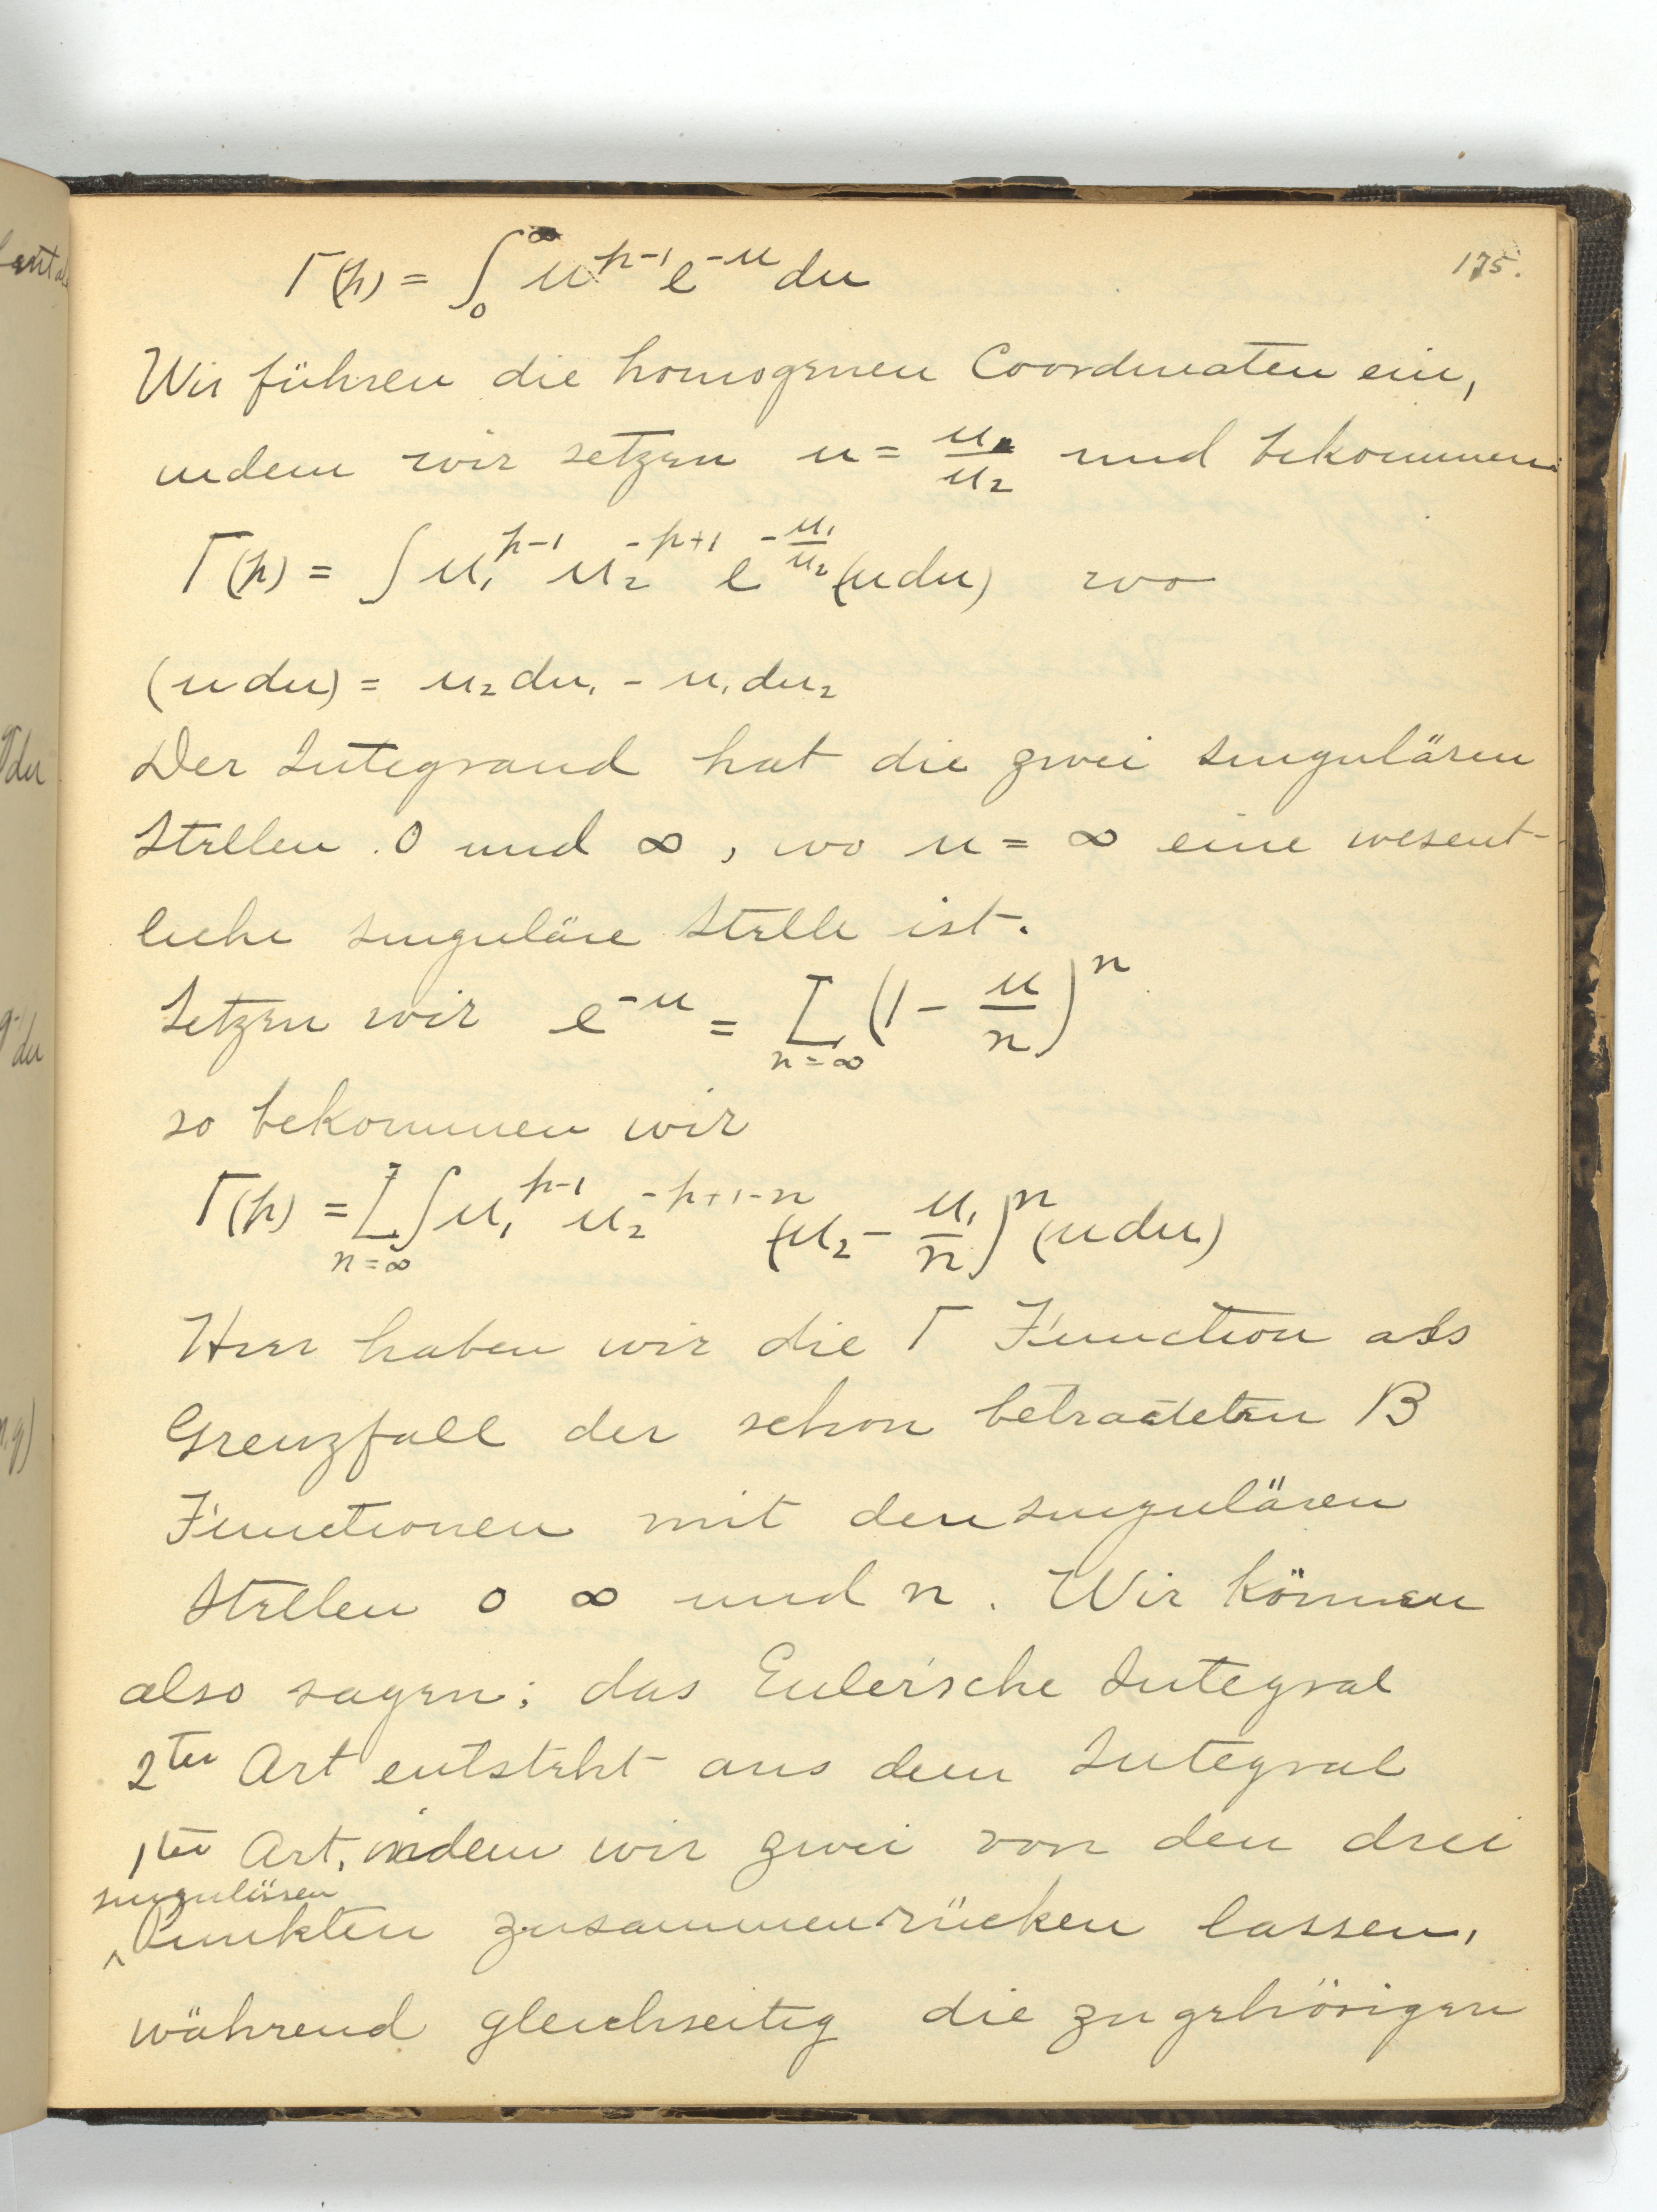 175.
Γ(p) = ∫₀^∞ u^{p-1} e^{-u} du
Wir führen die homogenen Coordinaten ein,
indem wir setzen u = u₁/u₂ und bekommen:
Γ(p) = ∫ u₁^{p-1} u₂^{-p+1} e^{-u₁/u₂} (u du) wo
(u du) = u₂ du₁ - u₁ du₂
Der Integrand hat die zwei singulären
Stellen 0 und ∞, wo u = ∞ eine wesent-
liche singuläre Stelle ist.
Setzen wir e^{-u} = L_{n=∞} (1 - u/n)^n
so bekommen wir
Γ(p) = L_{n=∞} ∫ u₁^{p-1} u₂^{-p+1-n} (u₂ - u₁/n)^n (u du)
Hier haben wir die Γ Function als
Grenzfall der schon betrachteten B
Functionen mit den singulären
Stellen 0 ∞ und n. Wir können
also sagen; das Euler'sche Integral
2ter Art entsteht aus dem Integral
1ter Art, indem wir zwei von den drei
singulären
Punkten zusammenrücken lassen,
während gleichseitig die zugehörigen